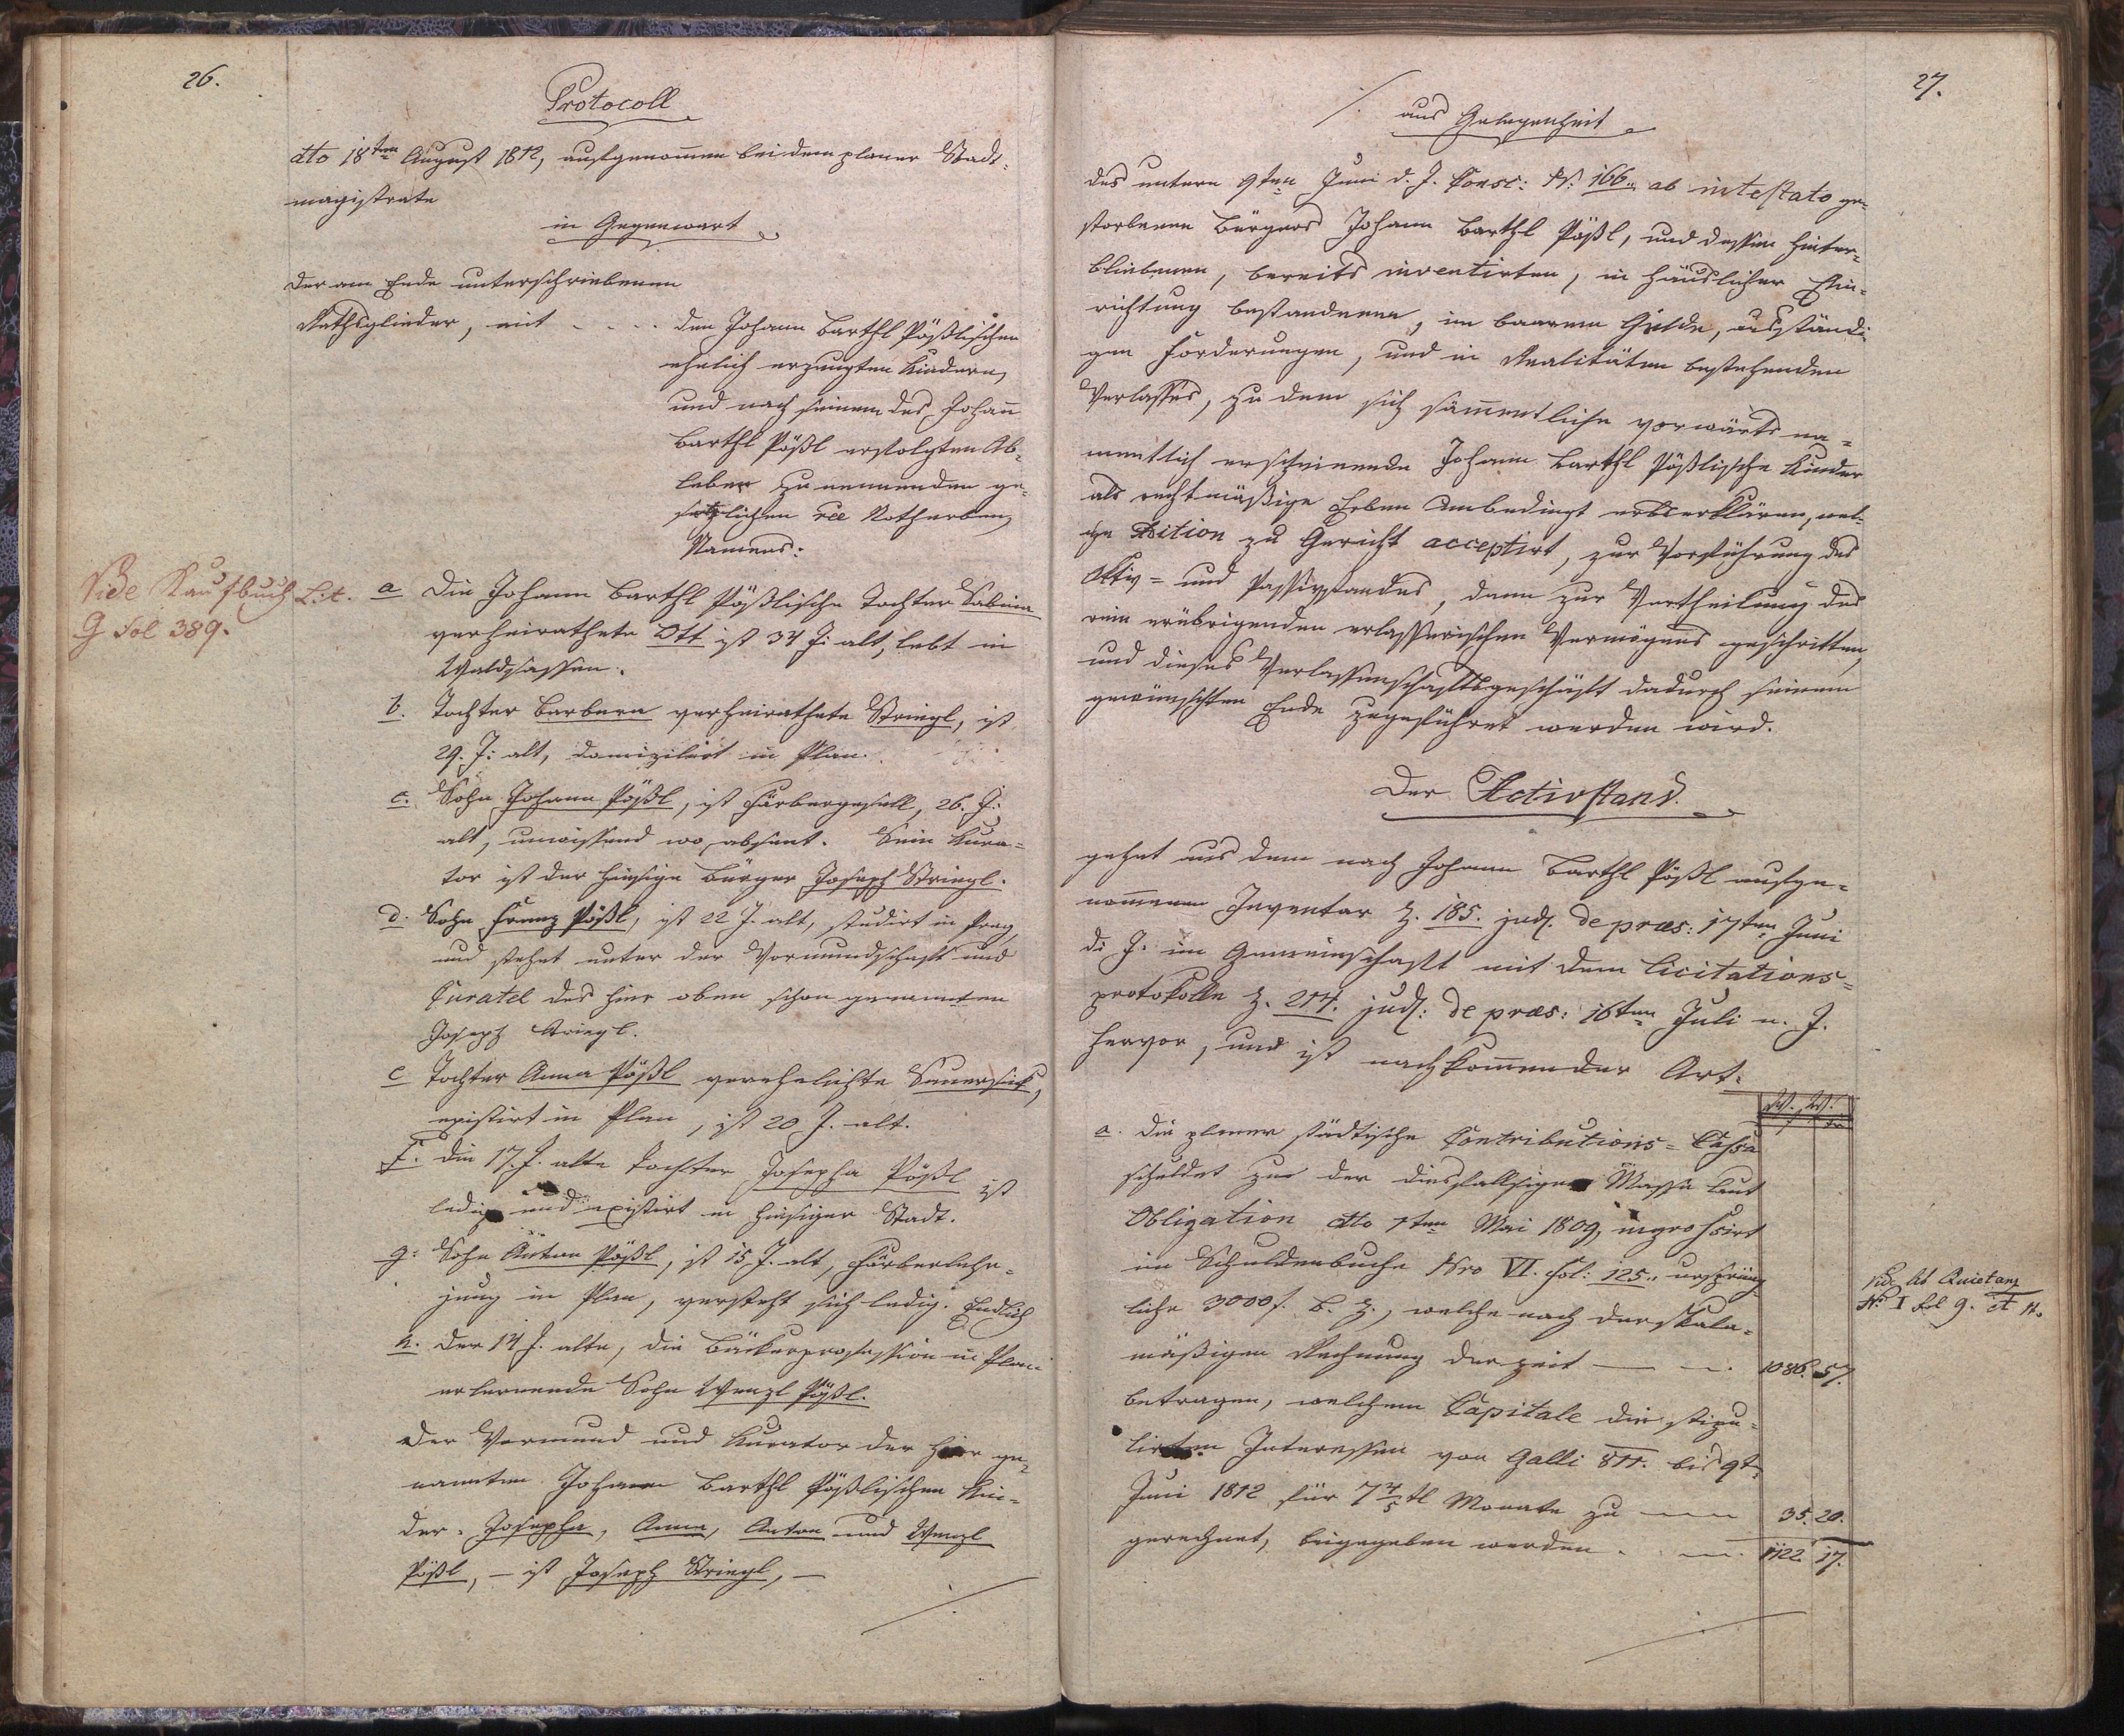 26.
Protocoll
dto 18ten August 1812, aufgenommen bei dem planer Stadt-
magistrate
in Gegenwart
Der am Ende unterschriebenen
Rathsglieder, mit - - - - den Johann Barthl Pößlischen
ehelich erzeugten Kindern,
und nach seinem des Johann
Barthl Pößl erfolgten Ab-
leben zu nennenden ge-
setzlichen Notherben,
Namens:
Vide Kaufbuch Lit.
G Fol 389.
a Die Johann Barthl Pößlische Tochter Sabina
verheirathete Ott ist 34 J: alt, lebt in
Waldsassen.
b. Tochter Barbara verheirathete Striegl, ist
29. J: alt, domizilirt in Plan.
c. Sohn Johann Pößl, ist Färbergesell, 26. J:
alt, unwissend wo, absent. Sein Kura-
tor ist der hiesige Bürger Joseph Striegl.
d. Sohn Franz Pößl, ist 22 J. alt, studirt in Prag,
und stehet unter der Vormundschaft und
Curatel des hier oben schon genannten
Joseph Striegl.
e Tochter Anna Pößl verehelichte Sauersick,
existirt in Plan, ist 20 J. alt.
f. Die 17. J. alte Tochter Josepha Pößl ist
ledig und existirt in hiesiger Stadt.
g. Sohn Anton Pößl, ist 15 J. alt, Färberlehr-
jung in Plan, versteht sich ledig. Endlich
h. Der 14 J. alte, die Bäckerprofession in Plan
erlernende Sohn Wenzl Pößl.
Der Vormund und Kurator der hier ge-
nannten Johann Barthl Pößlischen Kin-
der. Josepha, Anna, Anton und Wenzl
Pößl, – ist Joseph Striegl, –
./.
27.
./. aus Gelegenheit
des untern 9ten Juni d. J. Consc: N: 166 ab intestato ge-
storbenen Bürgers Johann Barthl Pößl, und dessen hinter-
bliebenen, bereits inventirten, in häuslicher Ein-
richtung bestandenen, im baarem Gelde, ausständi-
gen Forderungen, und in Realitäten bestehenden
Verlasses, zu dem sich sämmentliche vorwärts na-
mentlich erscheinende Johann Barthl Pößlische Kinder
als rechtmäßige Erben unbedingt erbserklären, wel-
che Adition zu Gericht acceptirt, zur Vorführung des
Aktiv- und Passivstandes, dann zur Vertheilung des
rein erübrigenden erlasserischen Vermögens geschritten,
und dieses Verlassenschaftsgeschäft dadurch seinem
gewünschten Ende zugeführet werden wird.
Der Activstand.
gehet aus dem nach Johann Barthl Pößl aufge-
nommenen Inventar Z. 185. judl. de præs: 17ten Juni
d. J. in Gemeinschaft mit dem Licitations-
protokolle Z. 214. judl: de præs: 16ten Juli n. J.
hervor, und ist nachkommender Art:
W. W.
a. Die planer städtische Contributions-Cassa
schuldet zu der diesfallsigen Massa laut
Obligation dto 1ten Mai 1809, ingrossirt
im Schuldenbuche Nro VI. fol: 125., ursprüng-
liche 3000 f. b. Z., welche nach der skala-
mäßigen Rechnung derzeit — 1086. 57.
betragen, welchem Capitale die stipu-
lirten Interessen von Galli 811. bis 9t
Juni 1812 für 7 4/5 tl Monate zu — 35. 20.
gerechnet, beigegeben werden. — 1122. 17.
Vide Ab Quietanz
N: I fol 9. et 11.
./.